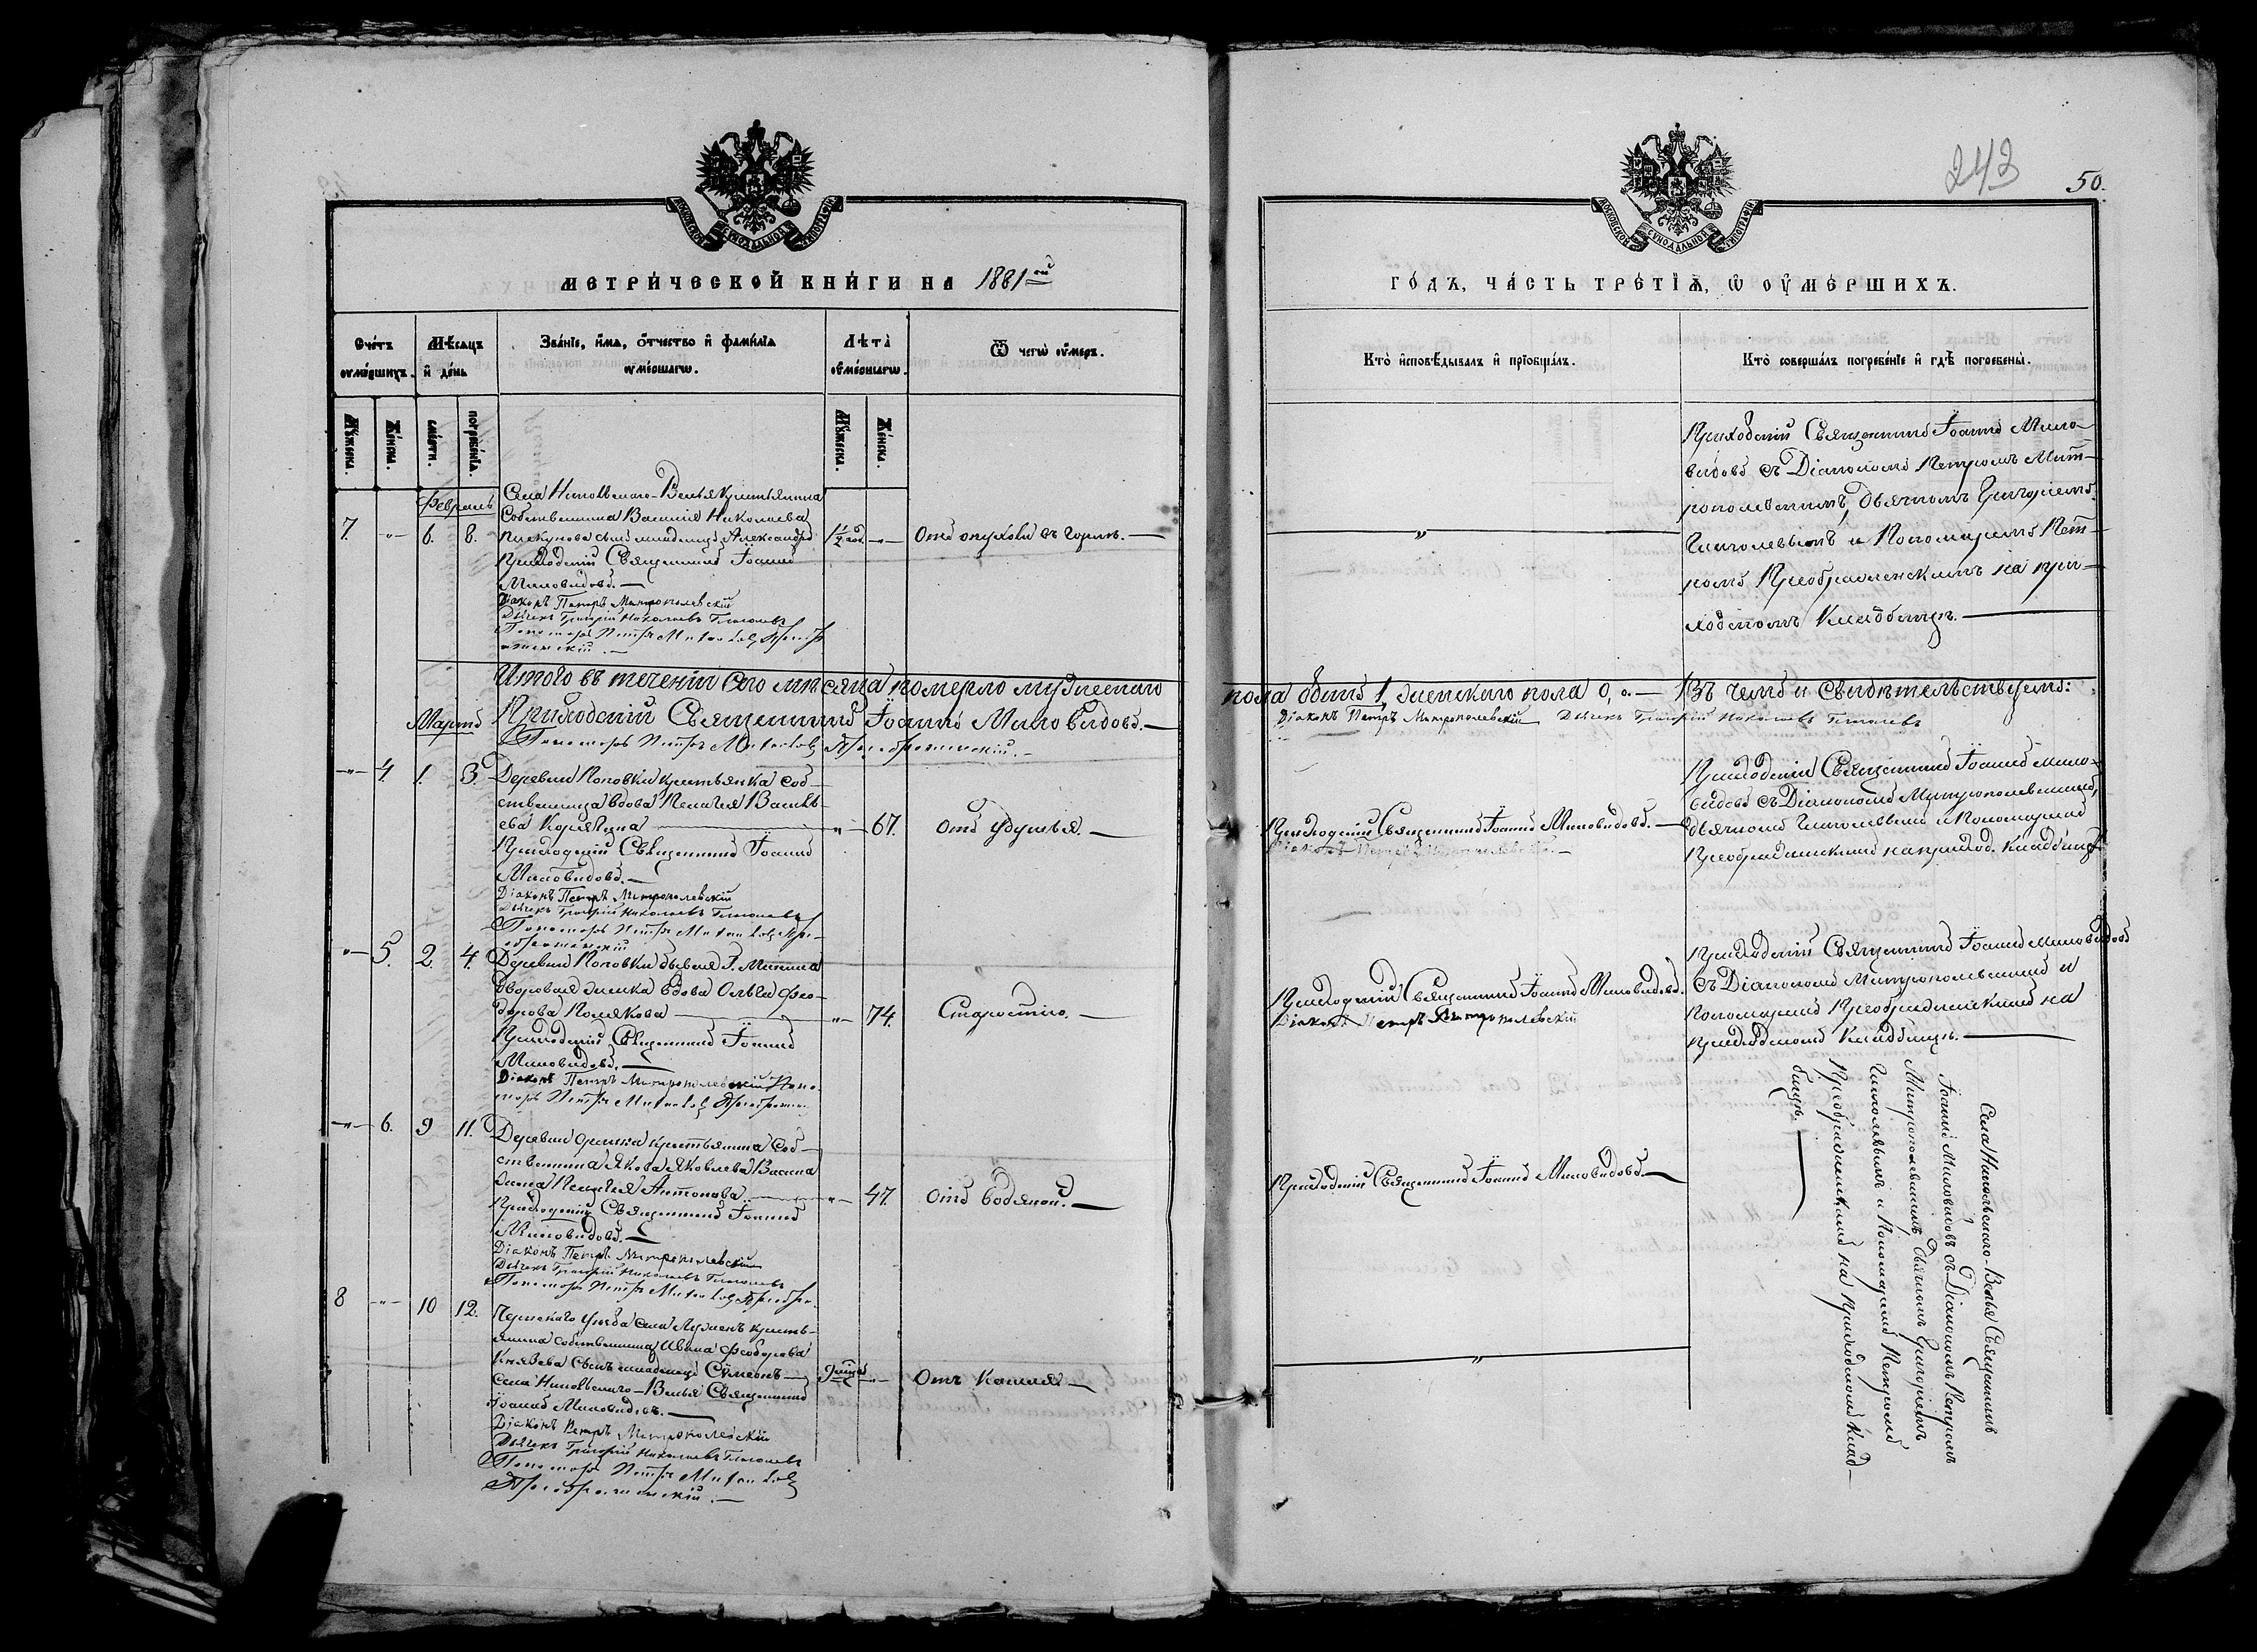 МОСКОВСКОЙ СѴНОДАЛЬНОЙ ТИПОГРАФІИ
МЕТРИЧЕСКОЙ КНИГИ НА 1881 ой
Счетъ умершихъ.
Мѣсяцъ и день
Званіе, имя, отчество и фамилія умершагѡ.
Лѣта умершагѡ.
Ѿ чегѡ умеръ.
Мужеска.
Женска.
смерти.
погребенія.
Мужеска.
Женска.
Февраль
7. -"- 6. 8.
Села Никольскаго-Вялья Крестьянина
Собственника Василія Николаева
сынъ младенецъ Александръ
1 1/2 год. -"- Отъ опухоли въ горлѣ.
Приходскій Священникъ Іоаннъ
Миловидовъ.
Діаконъ Петръ Митропольскій
Дьячекъ Григорій Николаевъ Глаголевъ
Пономарь Петръ
Итого въ теченіи сего мѣсяца померло мужескаго
Мартъ
Приходскій Священникъ Іоаннъ Миловидовъ.
Пономарь Петръ Преображенскій.
-"- 4. 1. 3.
Деревни Поповки крестьянка соб-
ственница вдова Пелагея Василь-
ева Корягина -"- 67. Отъ удушья.
Приходскій Священникъ Іоаннъ
Миловидовъ.
Діаконъ Петръ Митропольскій
Дьячекъ Григорій Николаевъ Глаголевъ
Пономарь Петръ Пре-
ображенскій
-"- 5. 2. 4.
Деревни Поповки бывшая Г.
дворовая женка вдова Ольга Фео-
дорова Полякова -"- 74. Старостію.
Приходскій Священникъ Іоаннъ
Миловидовъ.
Діаконъ Петръ Митропольскій Поно-
марь Петръ
-"- 6. 9 11.
Деревни крестьянина соб-
ственника Якова Яковлева
жена Пелагея Антонова -"- 47. Отъ водяной.
Приходскій Священникъ Іоаннъ
Миловидовъ.
Діаконъ Петръ Митропольскій
Дьячекъ Григорій Николаевъ Глаголевъ
Пономарь Петръ
8 -"- 10 12.
уѣзда села кресть-
янина собственника Ивана Феодорова
Князева сынъ младенецъ Сѵмеонъ -"- Отъ кашля
Села Никольскаго-Вялья Священникъ
Іоаннъ Миловидовъ.
Діаконъ Петръ Митропольскій
Дьячекъ Григорій Николаевъ Глаголевъ
Пономарь Петръ
Преображенскій.
243
50.
МОСКОВСКОЙ СѴНОДАЛЬНОЙ ТИПОГРАФІИ
ГОДЪ, ЧАСТЬ ТРЕТІЯ, Ѡ УМЕРШИХЪ.
Кто исповѣдывалъ и пріобщалъ.
Кто совершалъ погребеніе и гдѣ погребены.
"
Приходскій Священникъ Іоаннъ Мило-
видовъ съ Діакономъ Петромъ Мит-
ропольскимъ, дьячкомъ Григоріемъ
Глаголевымъ и Пономаремъ Пет-
ромъ Преображенскимъ на при-
ходскомъ кладбищѣ.
пола одинъ 1, женскаго пола 0, 0. Въ чемъ и свидѣтельствуемъ:
Діаконъ Петръ Митропольскій Дьячекъ Григорій Николаевъ Глаголевъ
Приходскій Священникъ Іоаннъ Миловидовъ.
Діаконъ Петръ Митропольскій.
Приходскій Священникъ Іоаннъ Мило-
видовъ съ Діакономъ Митропольскимъ,
дьячкомъ Глаголевымъ и Пономаремъ
Преображенскимъ на приход. кладбищѣ
Приходскій Священникъ Іоаннъ Миловидовъ.
Діаконъ Петръ Митропольскій
Приходскій Священникъ Іоаннъ Миловидовъ
съ Діакономъ Митропольскимъ и
Пономаремъ Преображенскимъ на
приходскомъ кладбищѣ.
Приходскій Священникъ Іоаннъ Миловидовъ.
"
Села Никольскаго-Вялья Священникъ
Іоаннъ Миловидовъ съ Діакономъ Петромъ
Митропольскимъ дьячкомъ Григоріемъ
Глаголевымъ и Пономаремъ Петромъ
Преображенскимъ на приходскомъ клад-
бищѣ.